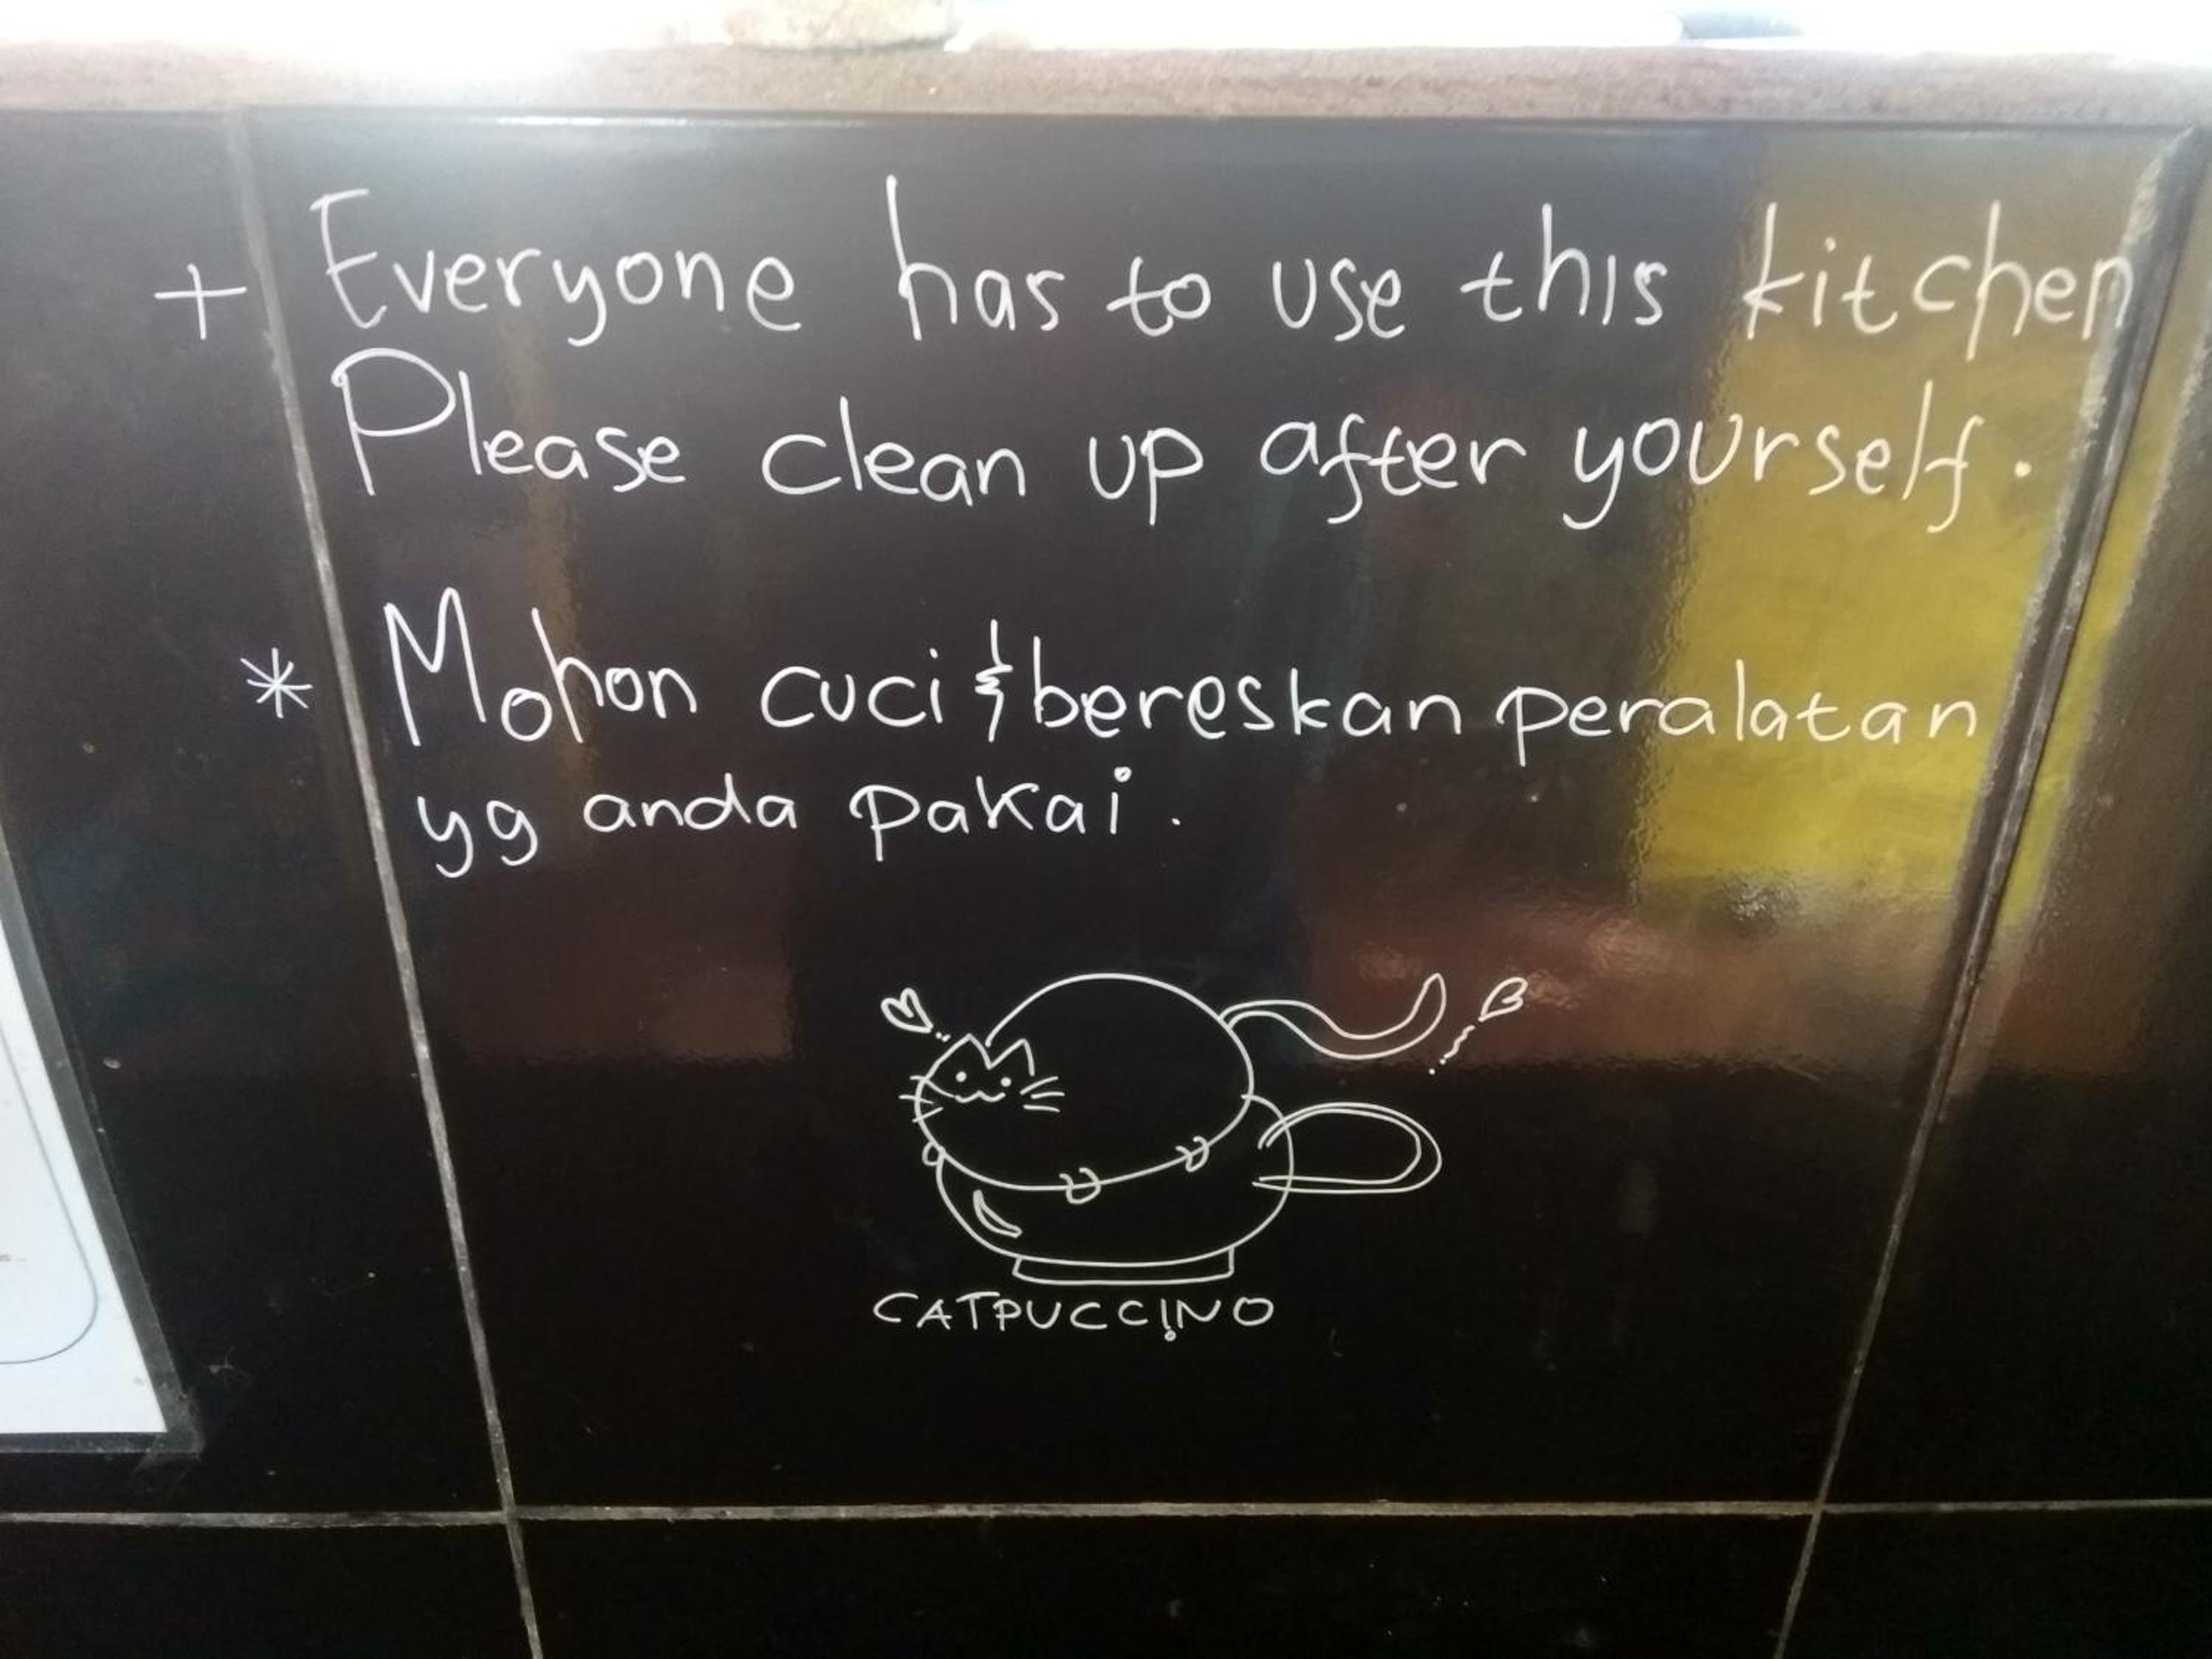 + Everyone has to use this kitchen
Please clean up after yourself.
* Mohon cuci & bereskan peralatan
yg anda pakai.
CATPUCCINO